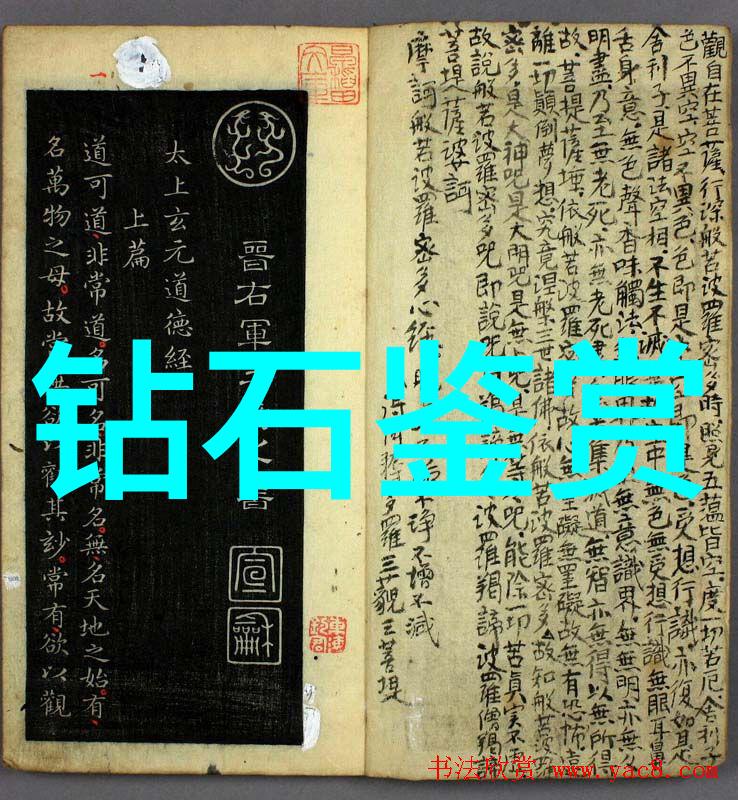 钻石鉴赏
觀自在菩薩行深般若波羅密多時照見五蘊皆空度一切苦厄舍利子
色不異空空不異色色即是受想行識亦復如是
舍利子是諸法空相不生不滅中無色無受想行識無眼耳鼻
舌身意無色聲香味觸法無意識界無無明亦無無
明盡乃至無老死亦無老死集滅道無智亦無得以無所得
故菩提薩埵依般若波羅密多故心無罣礙無罣礙故無有恐怖遠
離一切顛倒夢想究竟涅槃三世諸佛依般若波羅密多故知般若波羅
密多是大神咒是大明咒是無咒是無等咒能除一切苦真实不虛
故說般若波羅密多咒即說咒波羅揭諦波羅僧揭諦
菩提薩婆訶
摩訶般若波羅密多心經
淨不增不減
多羅三藐三菩提
晉右軍書
太上玄元道德經
上篇
道可道非常道名可名非常名無名天地之始有
名萬物之母故常無欲以觀其妙常有欲以觀
宣
龢
书法欣赏 www.yac8.com